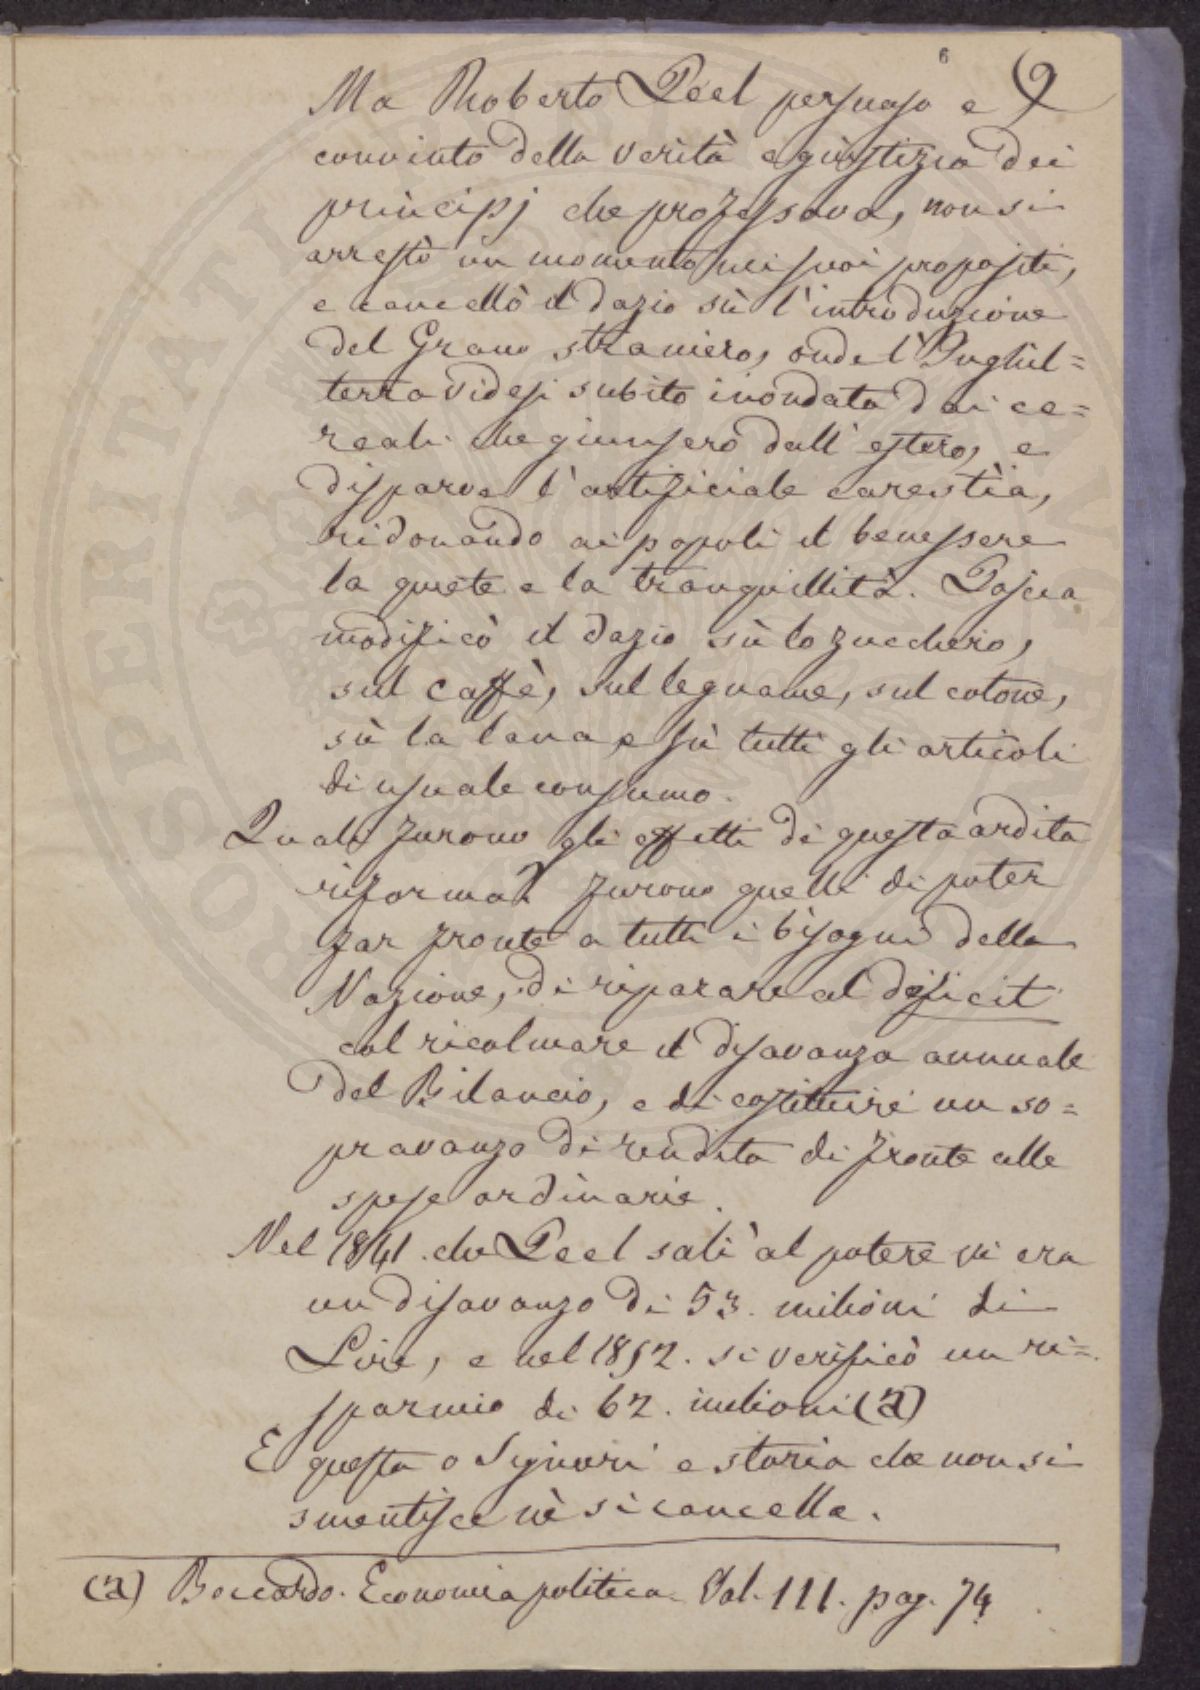 6 9
Ma Roberto Peel persuaso e
convinto della verità e giustizia dei
principj che professava, non si
arrestò un momento nei suoi propositi,
e cancellò il dazio sù l'introduzione
del Grano straniero, onde l'Inghil=
terra videsi subito inondata dai ce=
reali che giunsero dall'estero, e
disparve l'artificiale carestìa,
ridonando ai popoli il benessere
la quiete e la tranquillità. Poscia
modificò il dazio sù lo zucchero,
sul caffè, sul legname, sul cotone,
sù la lana, e sù tutti gli articoli
di usuale consumo.
Quali furono gli effetti di questa ardita
riforma? furono quelli di poter
far fronte a tutti i bisogni della
Nazione, di riparare al deficit
col ricolmare il disavanzo annuale
del Bilancio, e di costituire un so=
pravanzo di rendita di fronte alle
spese ordinarie.
Nel 1841. che Peel salì al potere vi era
un disavanzo di 53. milioni di
Lire, e nel 1852. si verificò un ri=
sparmio di 62. milioni (a)
E questa o Signori e storia che non si
smentisce nè si cancella.
(a) Boccardo. Economia politica. Vol. III. pag. 74
SPERITATI